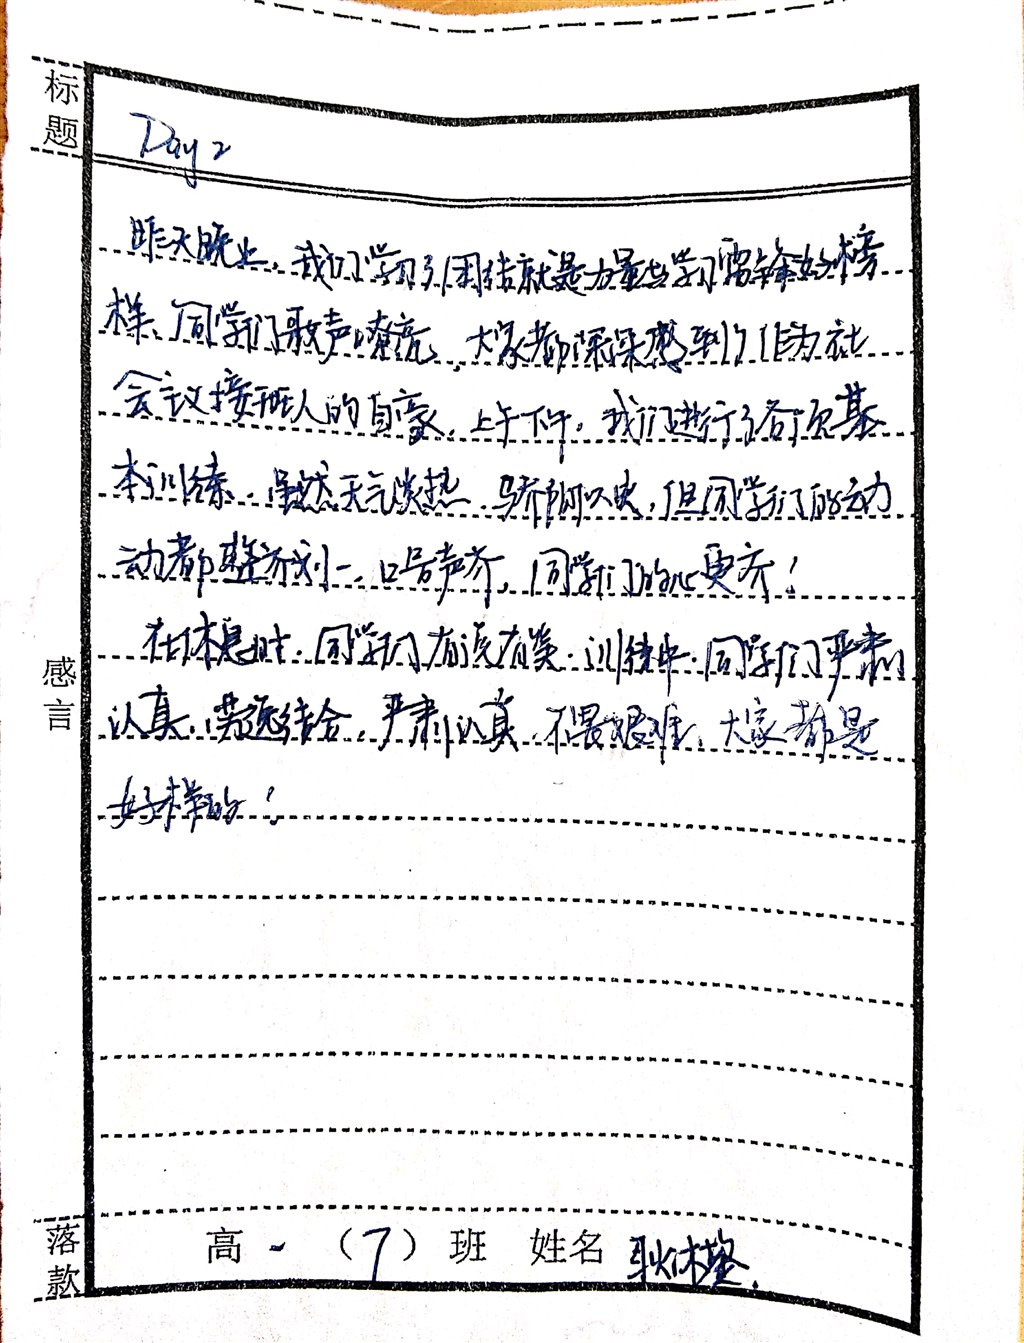 标题
Day 2
昨天晚上，我们学习了团结就是力量与学习雷锋好榜
样、同学们歌声嘹亮，大家都深深感到了作为社
会主义接班人的自豪，上午下午，我们进行了各项基
本训练，虽然天气炎热，骄阳似火，但同学们的动
动都整齐划一，口号声齐，同学们的心更齐！
在休息时，同学们有说有笑，训练中，同学们严肃
认真，劳逸结合，严肃认真，不畏艰难，大家都是
好样的！
感言
落款 高一（7）班 姓名 耿